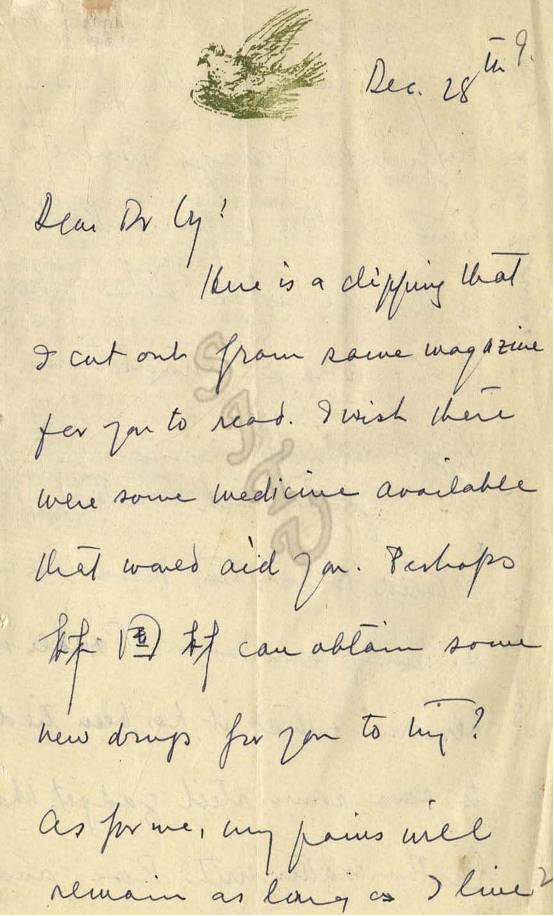 Dec. 28th
Dear Dr Cy!
Here is a clipping that
I cut out from some magazine
for you to read. I wish there
were some medicine available
that would aid you. Perhaps
林國材 can obtain some
new drugs for you to try?
As for me, my pains will
remain as long as I live